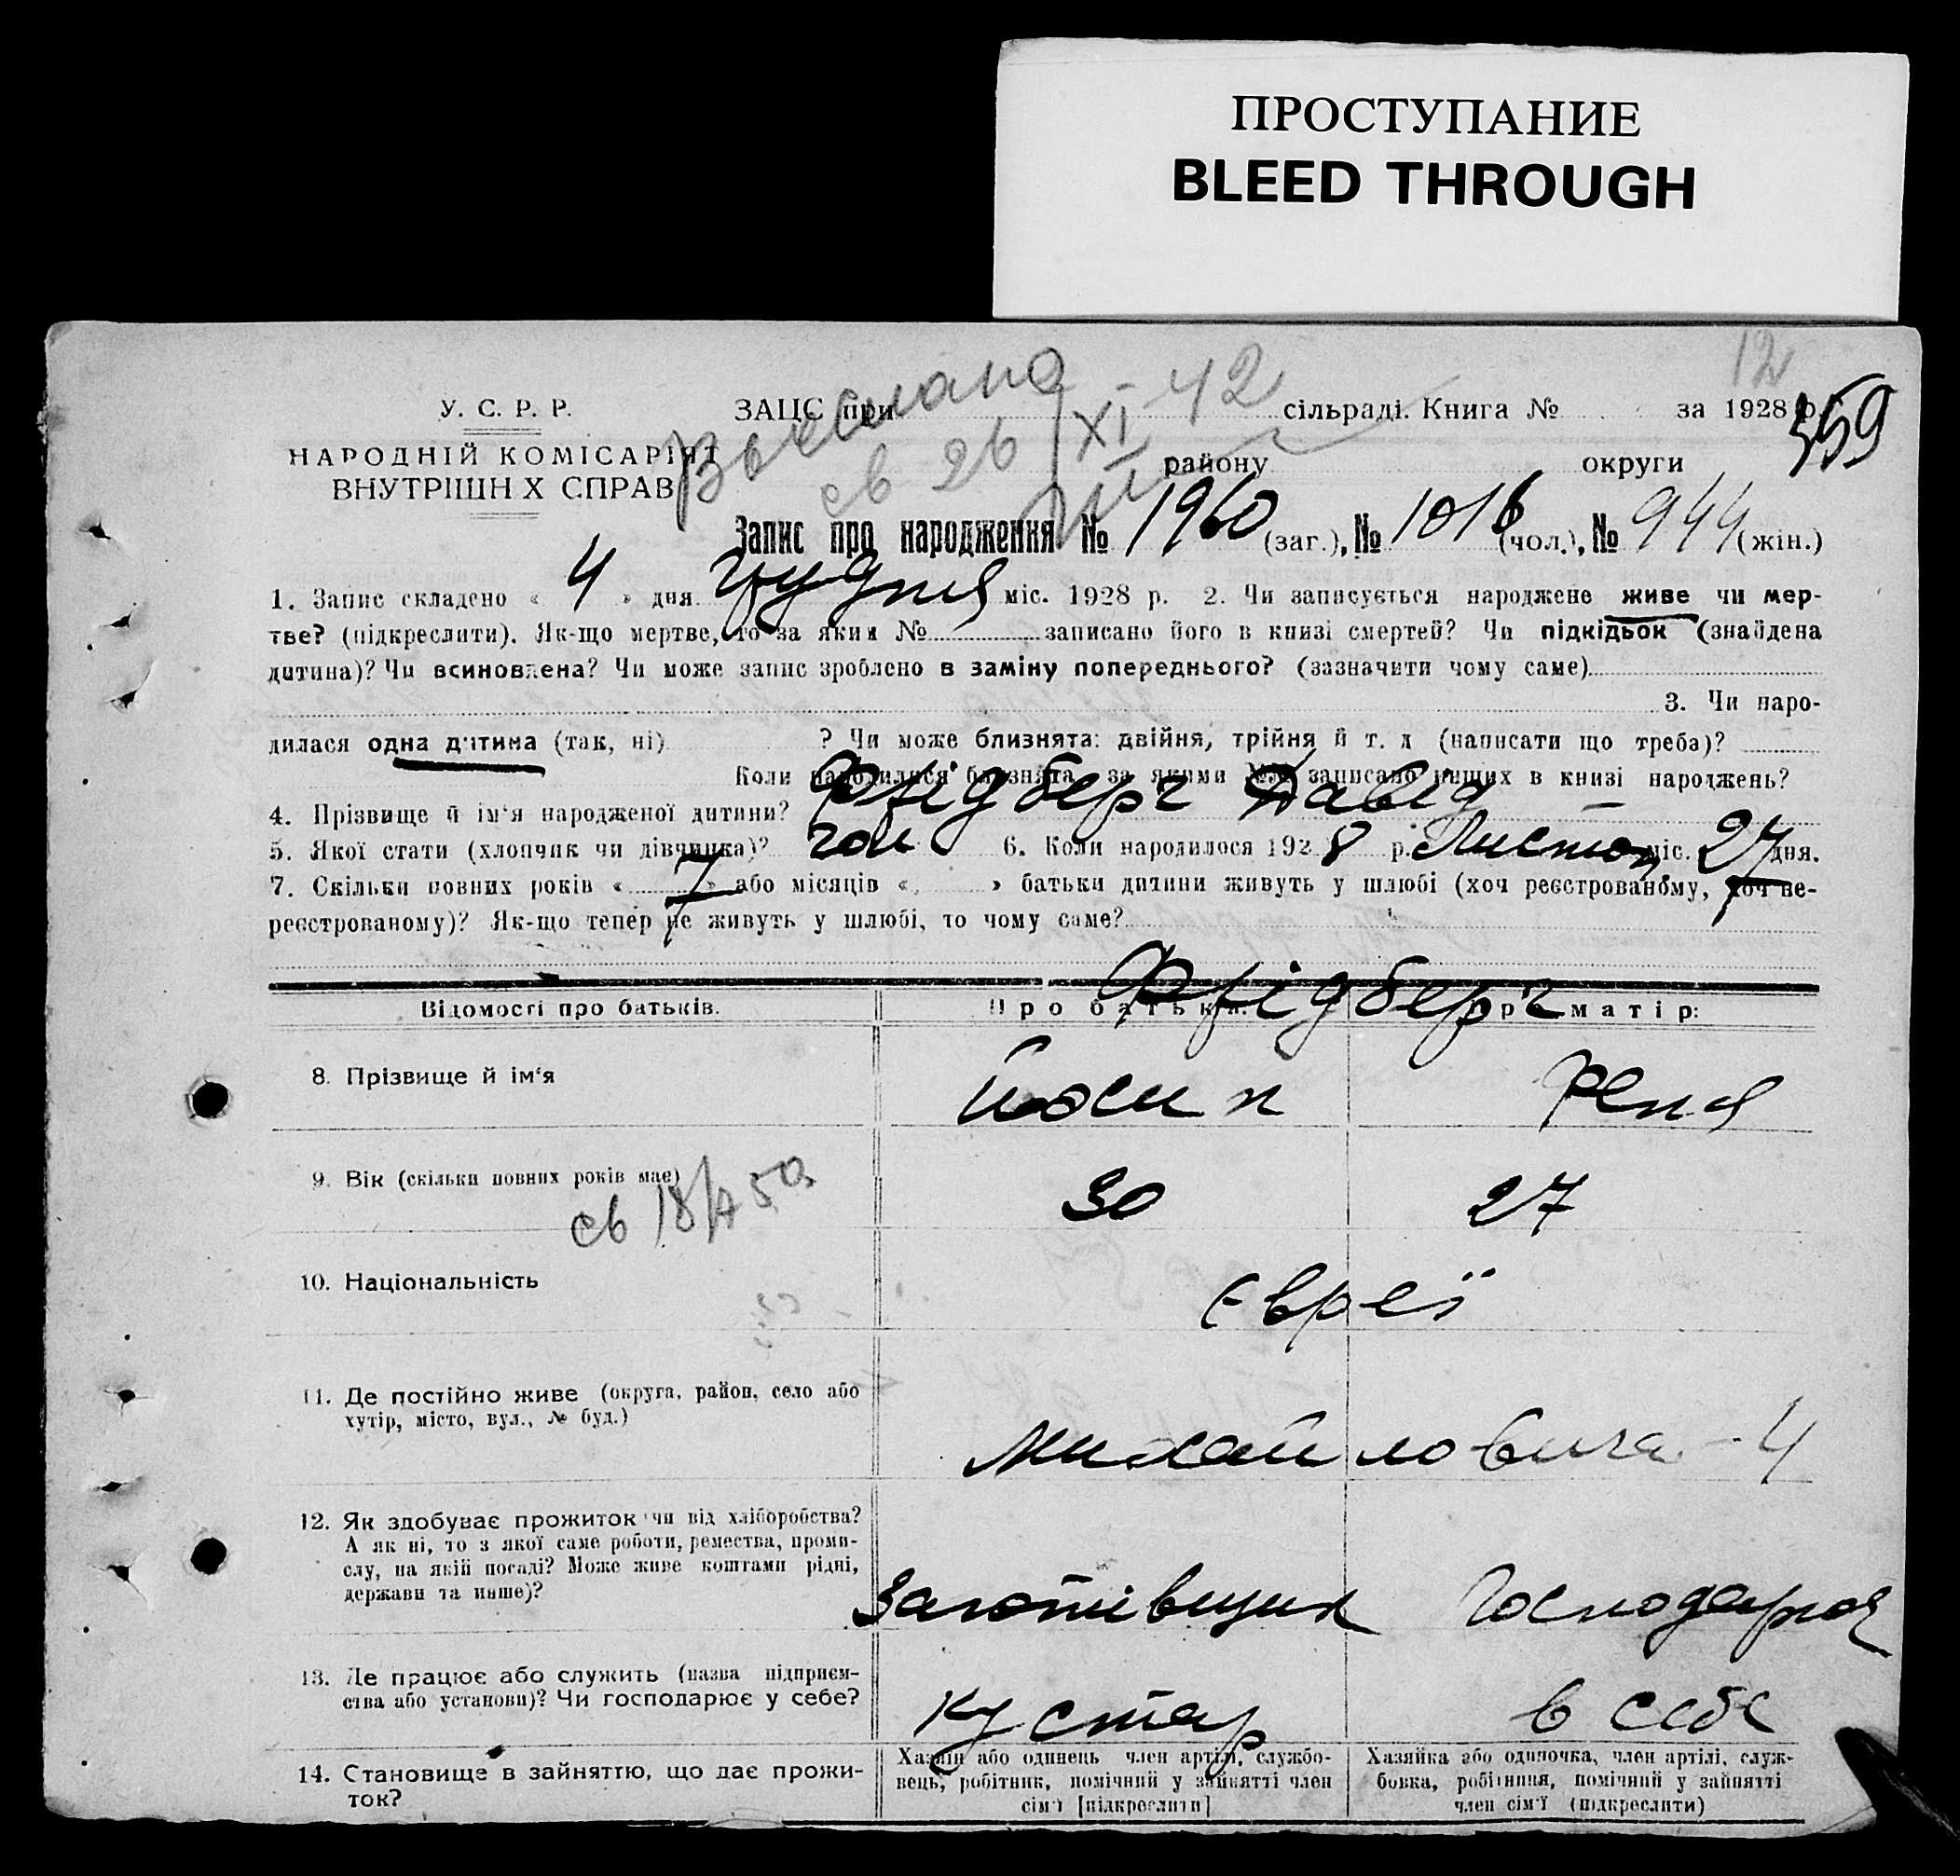 ПРОСТУПАНИЕ
BLEED THROUGH
12
У. С. Р. Р.
ЗАЦС при сільраді. Книга № за 1928 р.
359
НАРОДНІЙ КОМІСАРІЯТ
ВНУТРІШН Х СПРАВ
района округи
Выслана
св 26/XI-42
Запис про народження № 1960 (заг.), № 1016 (чол.), № 944 (жін.)
1. Запис складено « 4 » дня грудня міс. 1928 р. 2. Чи записується народжене живе чи мер-
тве? (підкреслити). Як-що мертве, то за яким № записано його в книзі смертей? Чи підкідьок (знайдена
дитина)? Чи всиновлена? Чи може запис зроблено в заміну попереднього? (зазначити чому саме)
3. Чи наро-
дилася одна дитина (так, ні) ? Чи може близнята: двійня, трійня й т. д (написати що треба)?
Коли народилися близнята, за якими №№ записано инших в книзі народжень?
4. Прізвище й ім‘я народженої дитини? Фрідберг Давід
5. Якої стати (хлопчик чи дівчинка)? чол 6. Коли народилося 1928 р. Листоп міс. 27 дня.
7. Скільки повних років « 7 » або місяців « » батьки дитини живуть у шлюбі (хоч реєстрованому, хоч не-
реєстрованому)? Як-що тепер не живуть у шлюбі, то чому саме?
Фрідберг
Відомості про батьків. Про батька: Про матір:
8. Прізвище й ім‘я Йосип Реня
9. Вік (скільки повних років має) 30 27
св 18/IV 50
10. Національність Євреї
11. Де постійно живе (округа, район, село або
хутір, місто, вул., № буд.)
Михайловича - 4
12. Як здобуває прожиток чи від хліборобства?
А як ні, то з якої саме роботи, ремества, проми-
слу, на якій посаді? Може живе коштами рідні,
держави та инше)?
Заготівщик Господарка
13. Де працює або служить (назва підприєм-
ства або установи)? Чи господарює у себе?
Кустар в себе
14. Становище в зайняттю, що дає прожи-
ток?
Хазяїн або одинець член артілі, службо-
вець, робітник, помічний у зайнятті член
сім‘ї [підкреслити]
Хазяйка або одиночка, член артілі, служ-
бовка, робітниця, помічний у зайнятті
член сім‘ї (підкреслити)